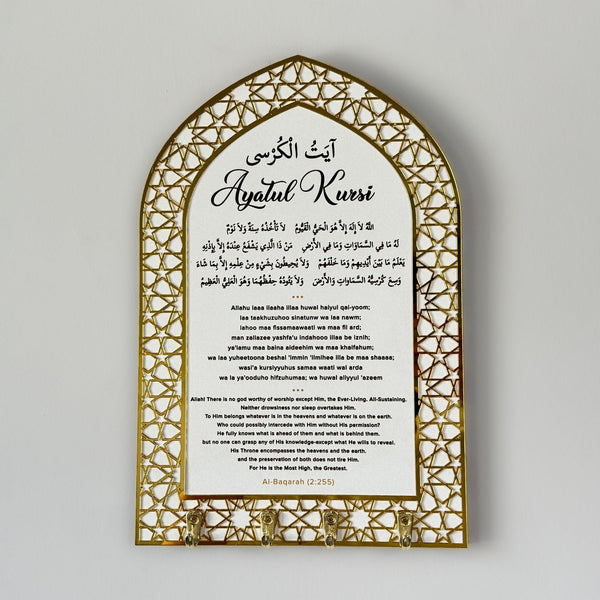 آيَتُ الْكُرْسى
Ayatul Kursi
اللهُ لاَ إِلَهَ إِلاَّ هُوَ الْحَيُّ الْقَيُّومُ لاَ تَأْخُذُهُ سِنَةٌ وَلاَ نَوْمٌ
لَهُ مَا فِي السَّمَاوَاتِ وَمَا فِي الأَرْضِ مَن ذَا الَّذِي يَشْفَعُ عِنْدَهُ إِلاَّ بِإِذْنِهِ
يَعْلَمُ مَا بَيْنَ أَيْدِيهِمْ وَمَا خَلْفَهُمْ وَلاَ يُحِيطُونَ بِشَيْءٍ مِنْ عِلْمِهِ إِلاَّ بِمَا شَاءَ
وَسِعَ كُرْسِيُّهُ السَّمَاواتِ وَالأَرْضَ وَلاَ يَئُودُهُ حِفْظُهُمَا وَهُوَ الْعَلِيُّ الْعَظِيمُ
Allahu laaa ilaaha illaa huwal haiyul qai-yoom;
laa taakhuzuhoo sinatunw wa laa nawm;
lahoo maa fissamaawaati wa maa fil ard;
man zallazee yashfa'u indahooo illaa be iznih;
ya'lamu maa baina aideehim wa maa khalfahum;
wa laa yuheetoona beshai 'immin 'ilmihee illa be maa shaaa;
wasi'a kursiyyuhus samaa waati wal arda
wa la ya'ooduho hifzuhumaa; wa huwal aliyyul 'azeem
Allah! There is no god worthy of worship except Him, the Ever-Living. All-Sustaining.
Neither drowsiness nor sleep overtakes Him.
To Him belongs whatever is in the heavens and whatever is on the earth.
Who could possibly intercede with Him without His permission?
He fully knows what is ahead of them and what is behind them,
but no one can grasp any of His knowledge-except what He wills to reveal.
His Throne encompasses the heavens and the earth.
and the preservation of both does not tire Him.
For He is the Most High, the Greatest.
Al-Baqarah (2:255)